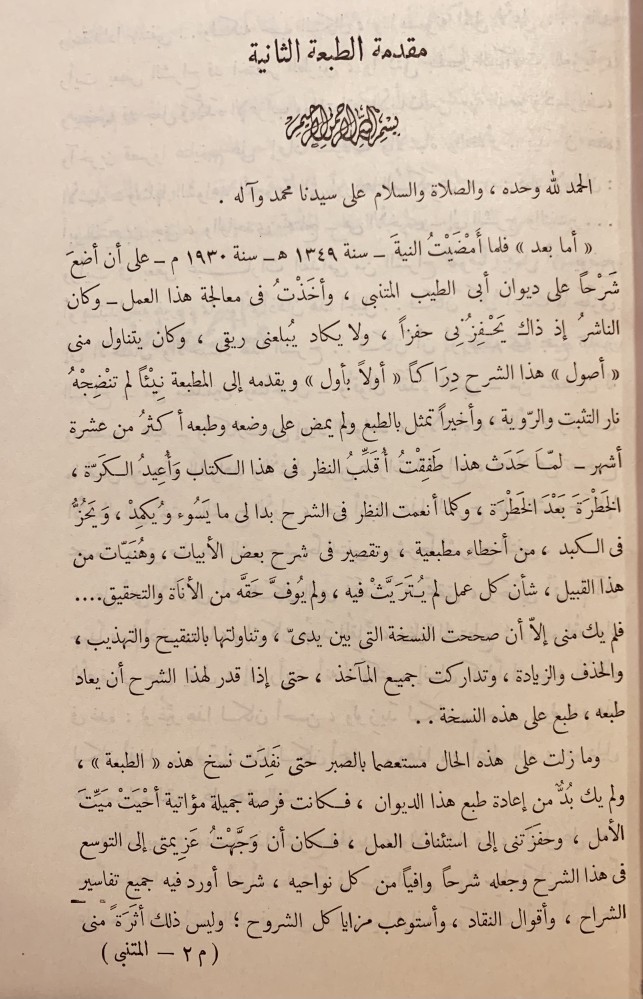 مقدمة الطبعة الثانية
بسم الله الرحمن الرحيم
الحمد لله وحده ، والصلاة والسلام على سيدنا محمد وآله .
« أما بعد » فلما أَمْضَيْتُ النيةَ ــ سنة ١٣٤٩ هـ ــ سنة ١٩٣٠ م ــ على أن أضعَ
شَرْحاً على ديوان أبى الطيب المتنبى ، وأخَذْتُ فى معالجة هذا العمل ــ وكان
الناشرُ إذ ذاك يَحْفِزُنِى حفزاً ، ولا يكاد يُبلعنى ريقى ، وكان يتناول منى
« أصول » هذا الشرح دِرَاكاً « أولاً بأول » ويقدمه إلى المطبعة نِيْئاً لم تنْضِجْهُ
نار التثبت والرّوية ، وأخيراً تمثل بالطبع ولم يمض على وضعه وطبعه أكثرُ من عشرة
أشهر ــ لمّا حَدَث هذا طَفِقْتُ أُقَلِّبُ النظر فى هذا الكتاب وَأُعِيدُ الكَرّة ،
الخَطْرَةَ بَعْدَ الخَطْرَة ، وكلما أنعمت النظر فى الشرح بدا لى ما يَسُوء ويُكمِدْ ، وَيَحُزُّ
فى الكبد ، من أخطاء مطبعية ، وتقصير فى شرح بعض الأبيات ، وهُنَيّات من
هذا القبيل ، شأن كل عمل لم يُتَرَيَّثْ فيه ، ولم يُوفَّ حَقَّه من الأنَاة والتحقيق....
فلم يك منى إلاّ أن صححت النسخة التى بين يدىّ ، وتناولتها بالتنقيح والتهذيب ،
والحذف والزيادة ، وتداركت جميع المآخذ ، حتى إذا قدر لهذا الشرح أن يعاد
طبعه ، طبع على هذه النسخة . .
وما زلت على هذه الحال مستعصما بالصبر حتى نَفِدَت نسخ هذه « الطبعة » ،
ولم يك بُدٌّ من إعادة طبع هذا الديوان ، فكانت فرصة جميلة مؤاتية أحْيَتْ مَيِّتَ
الأمل ، وحفَزَتنى إلى استئناف العمل ، فكان أن وَجَّهْتُ عَزيمتى إلى التوسع
فى هذا الشرح وجعله شرحاً وافياً من كل نواحيه ، شرحا أورد فيه جميع تفاسير
الشراح ، وأقوال النقاد ، وأستوعب مزايا كل الشروح ؛ وليس ذلك أثَرَةً منى
( م ٢ ــ المتنبى )